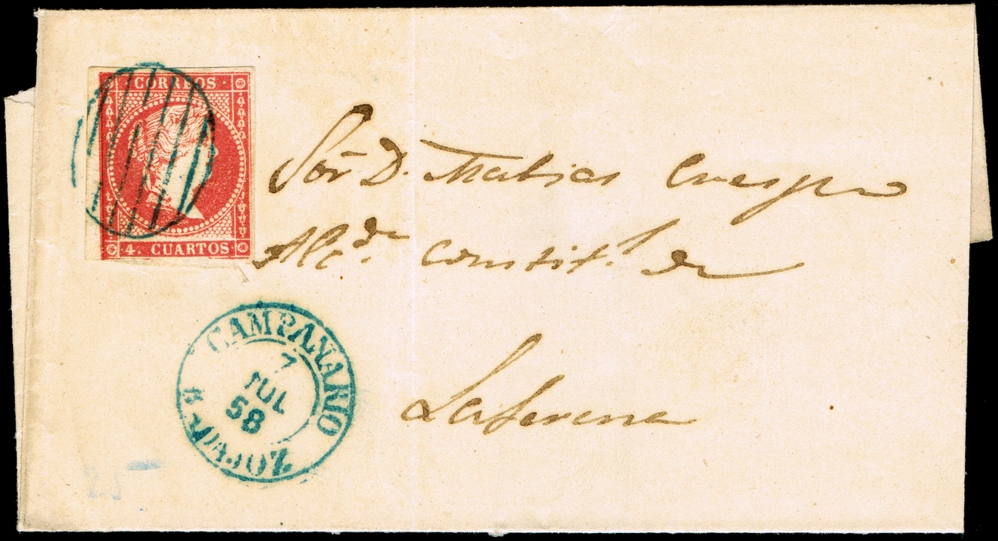 CORREOS
4. CUARTOS
Sor. D. Matias Crespo
Alc.de constit.l de
Laserena
CAMPANARIO
7
JUL
58
BADAJOZ
25